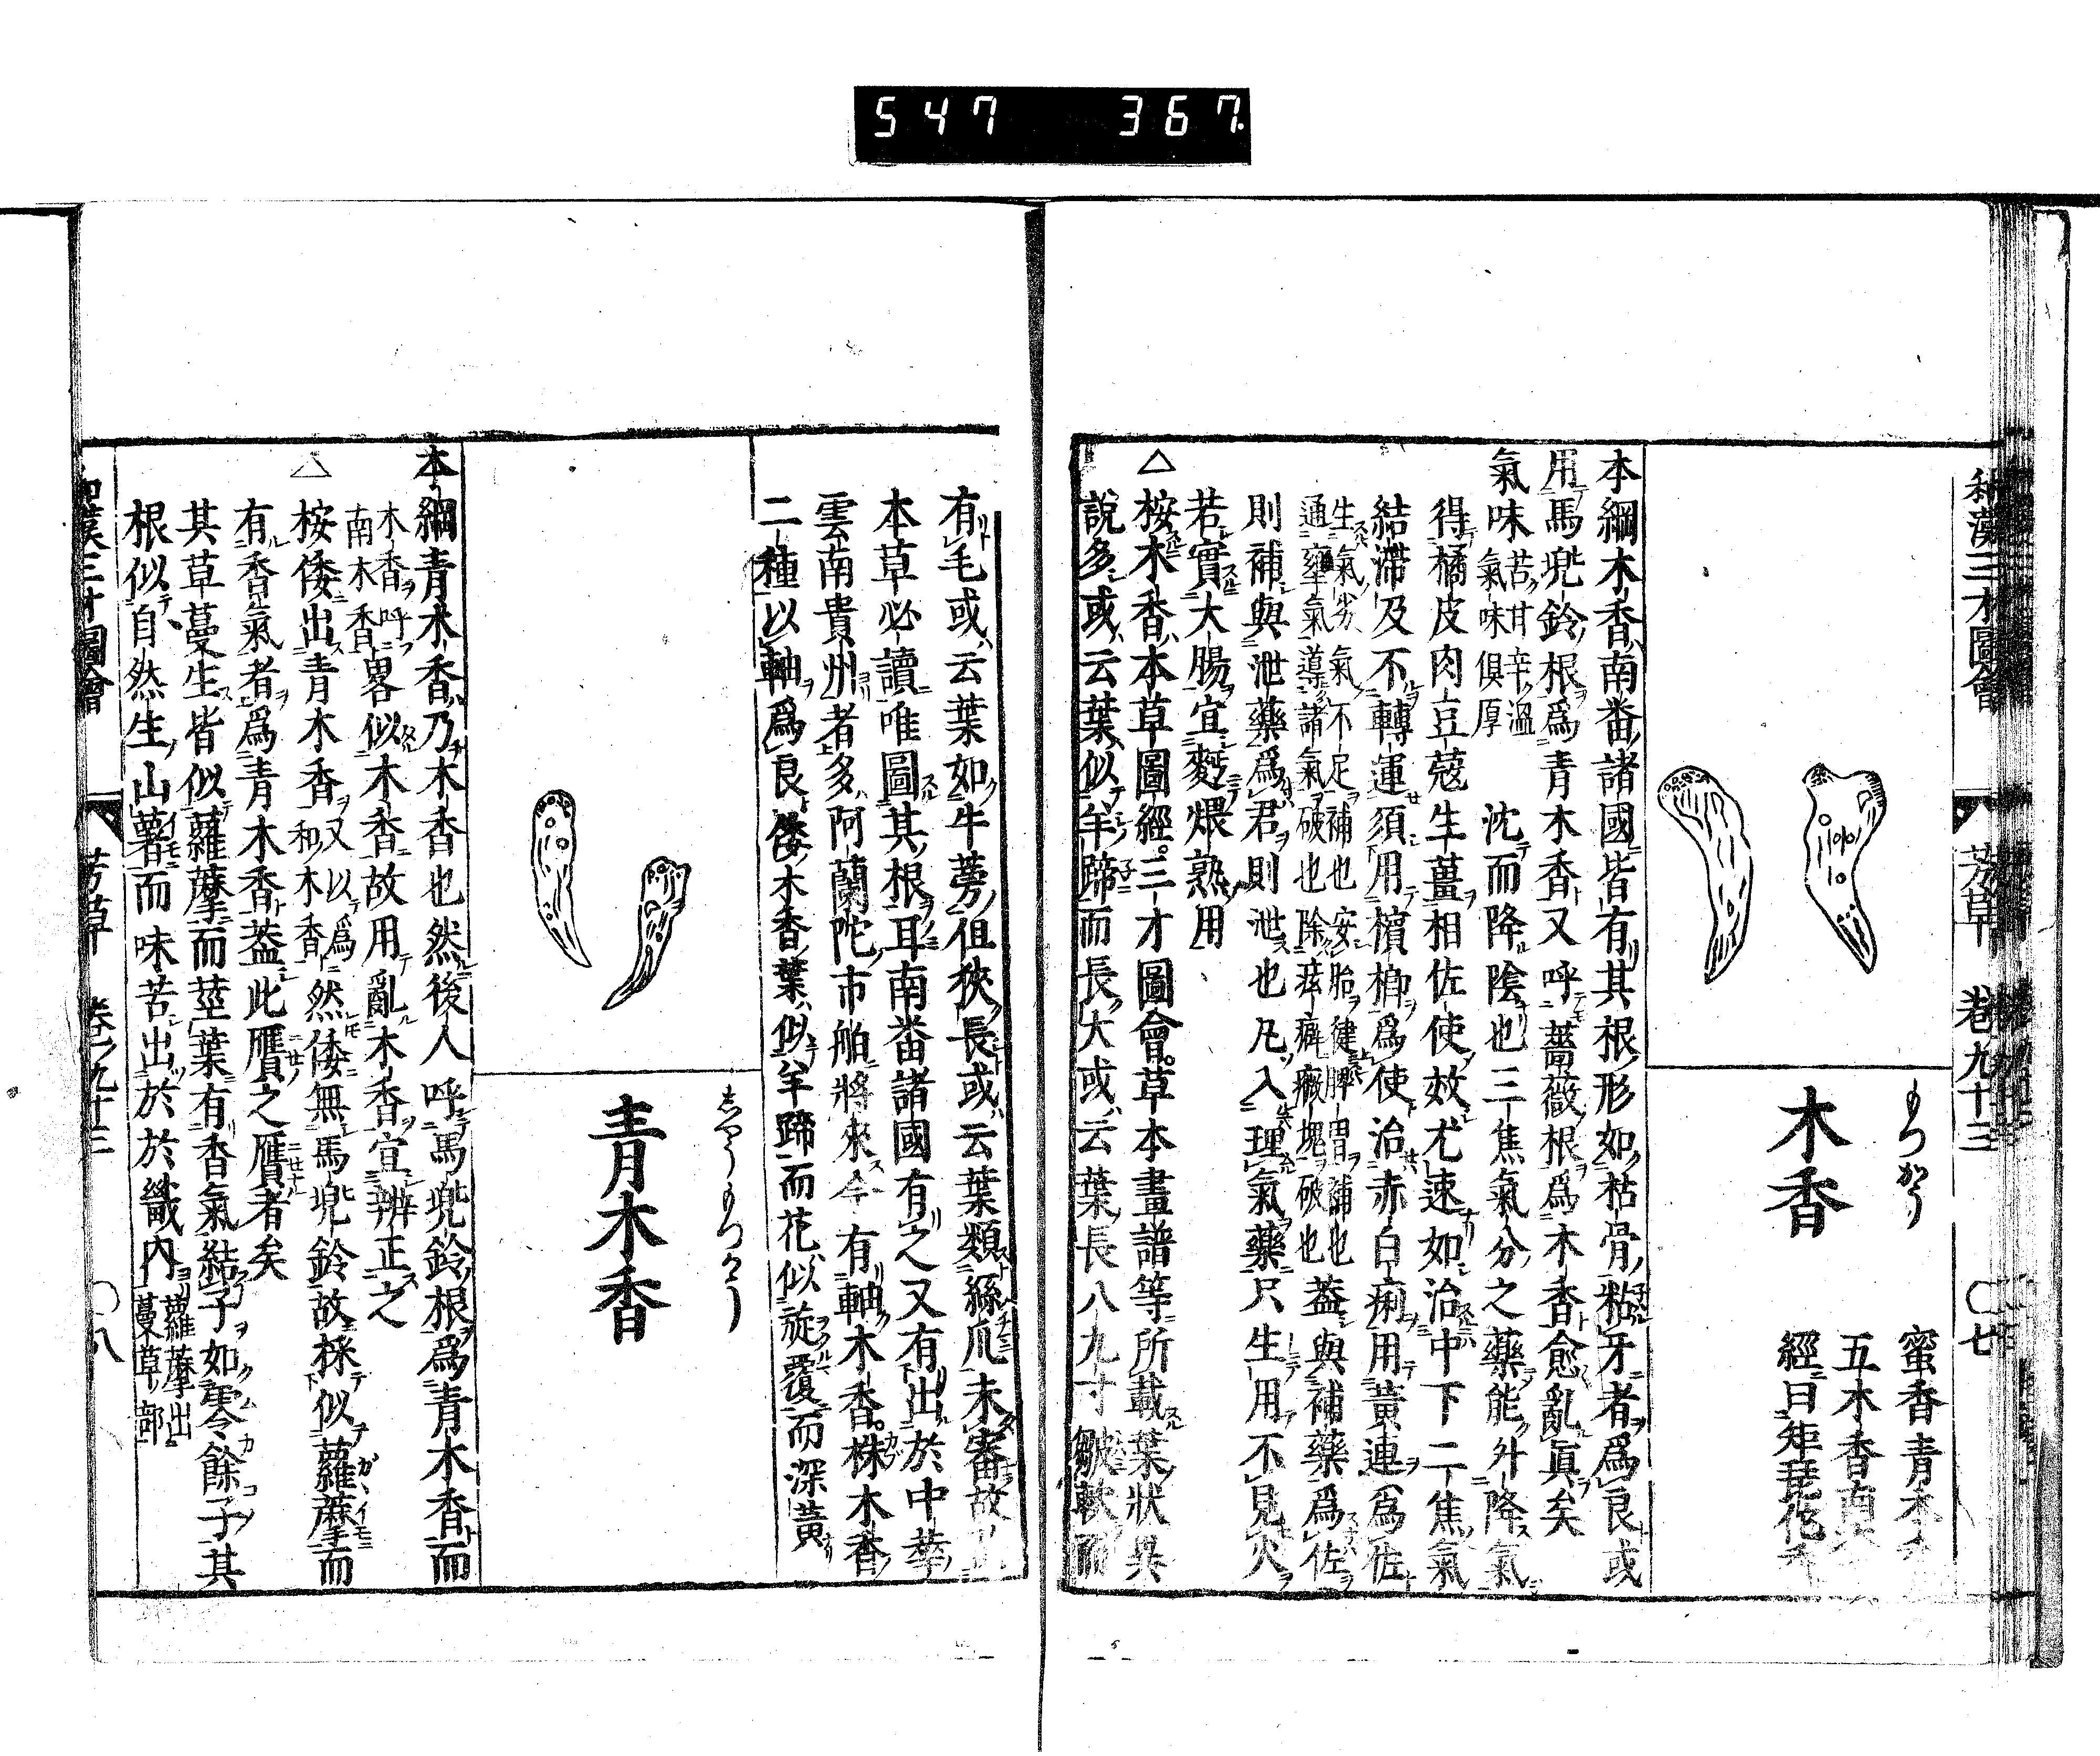 547 367
和漢三才圖會 芳草 卷九十三 〇七
もつかう
木香
蜜香 青木香
五木香 南木
經曰矩琵花香
本綱木香南番諸國皆有其根形如枯骨粘牙者爲良或
用馬兜鈴根爲青木香又呼薔薇根爲木香愈亂眞矣
氣味 苦甘辛溫
氣味俱厚 沈而降陰也三焦氣分之藥能升降氣
得橘皮肉豆蔻生薑相佐使效尤速如治中下二焦氣
結滯及不轉運須用檳榔爲使治赤白痢用黃連爲佐
生氣劣氣不足補也安胎健脾胃補也
通壅氣導諸氣破也除痃癖癥塊破也 蓋與補藥爲佐
則補與泄藥爲君則泄也凡入理氣藥只生用不見火
若實大腸宜麪煨熟用
△按木香本草圖經三才圖會草本畫譜等所載葉狀異
說多或云葉似羊蹄而長大或云葉長八九寸皺軟而
有毛或云葉如牛蒡但狹長或云葉類絲瓜未審故
本草必讀唯圖其根耳南番諸國有之又有出於中華
雲南貴州者多阿蘭陀市舶將來今有軸木香株木香
二種以軸爲良倭木香葉似羊蹄而花似旋覆而深黃
志やうもつかう
青木香
本綱青木香乃木香也然後人呼馬兜鈴根爲青木香而
木香呼
南木香 畧似木香故用亂木香宜辨正之
△按倭出青木香 又以爲
和木香 然倭無馬兜鈴故采似蘿藦而
有香氣者爲青木香蓋此贋之贋者矣
其草蔓生皆似蘿藦而莖葉有香氣結子如零餘子其
根似自然生山薯而味苦出於於畿內 蘿藦出
蔓草部
和漢三才圖會 芳草 卷之九十三 〇八